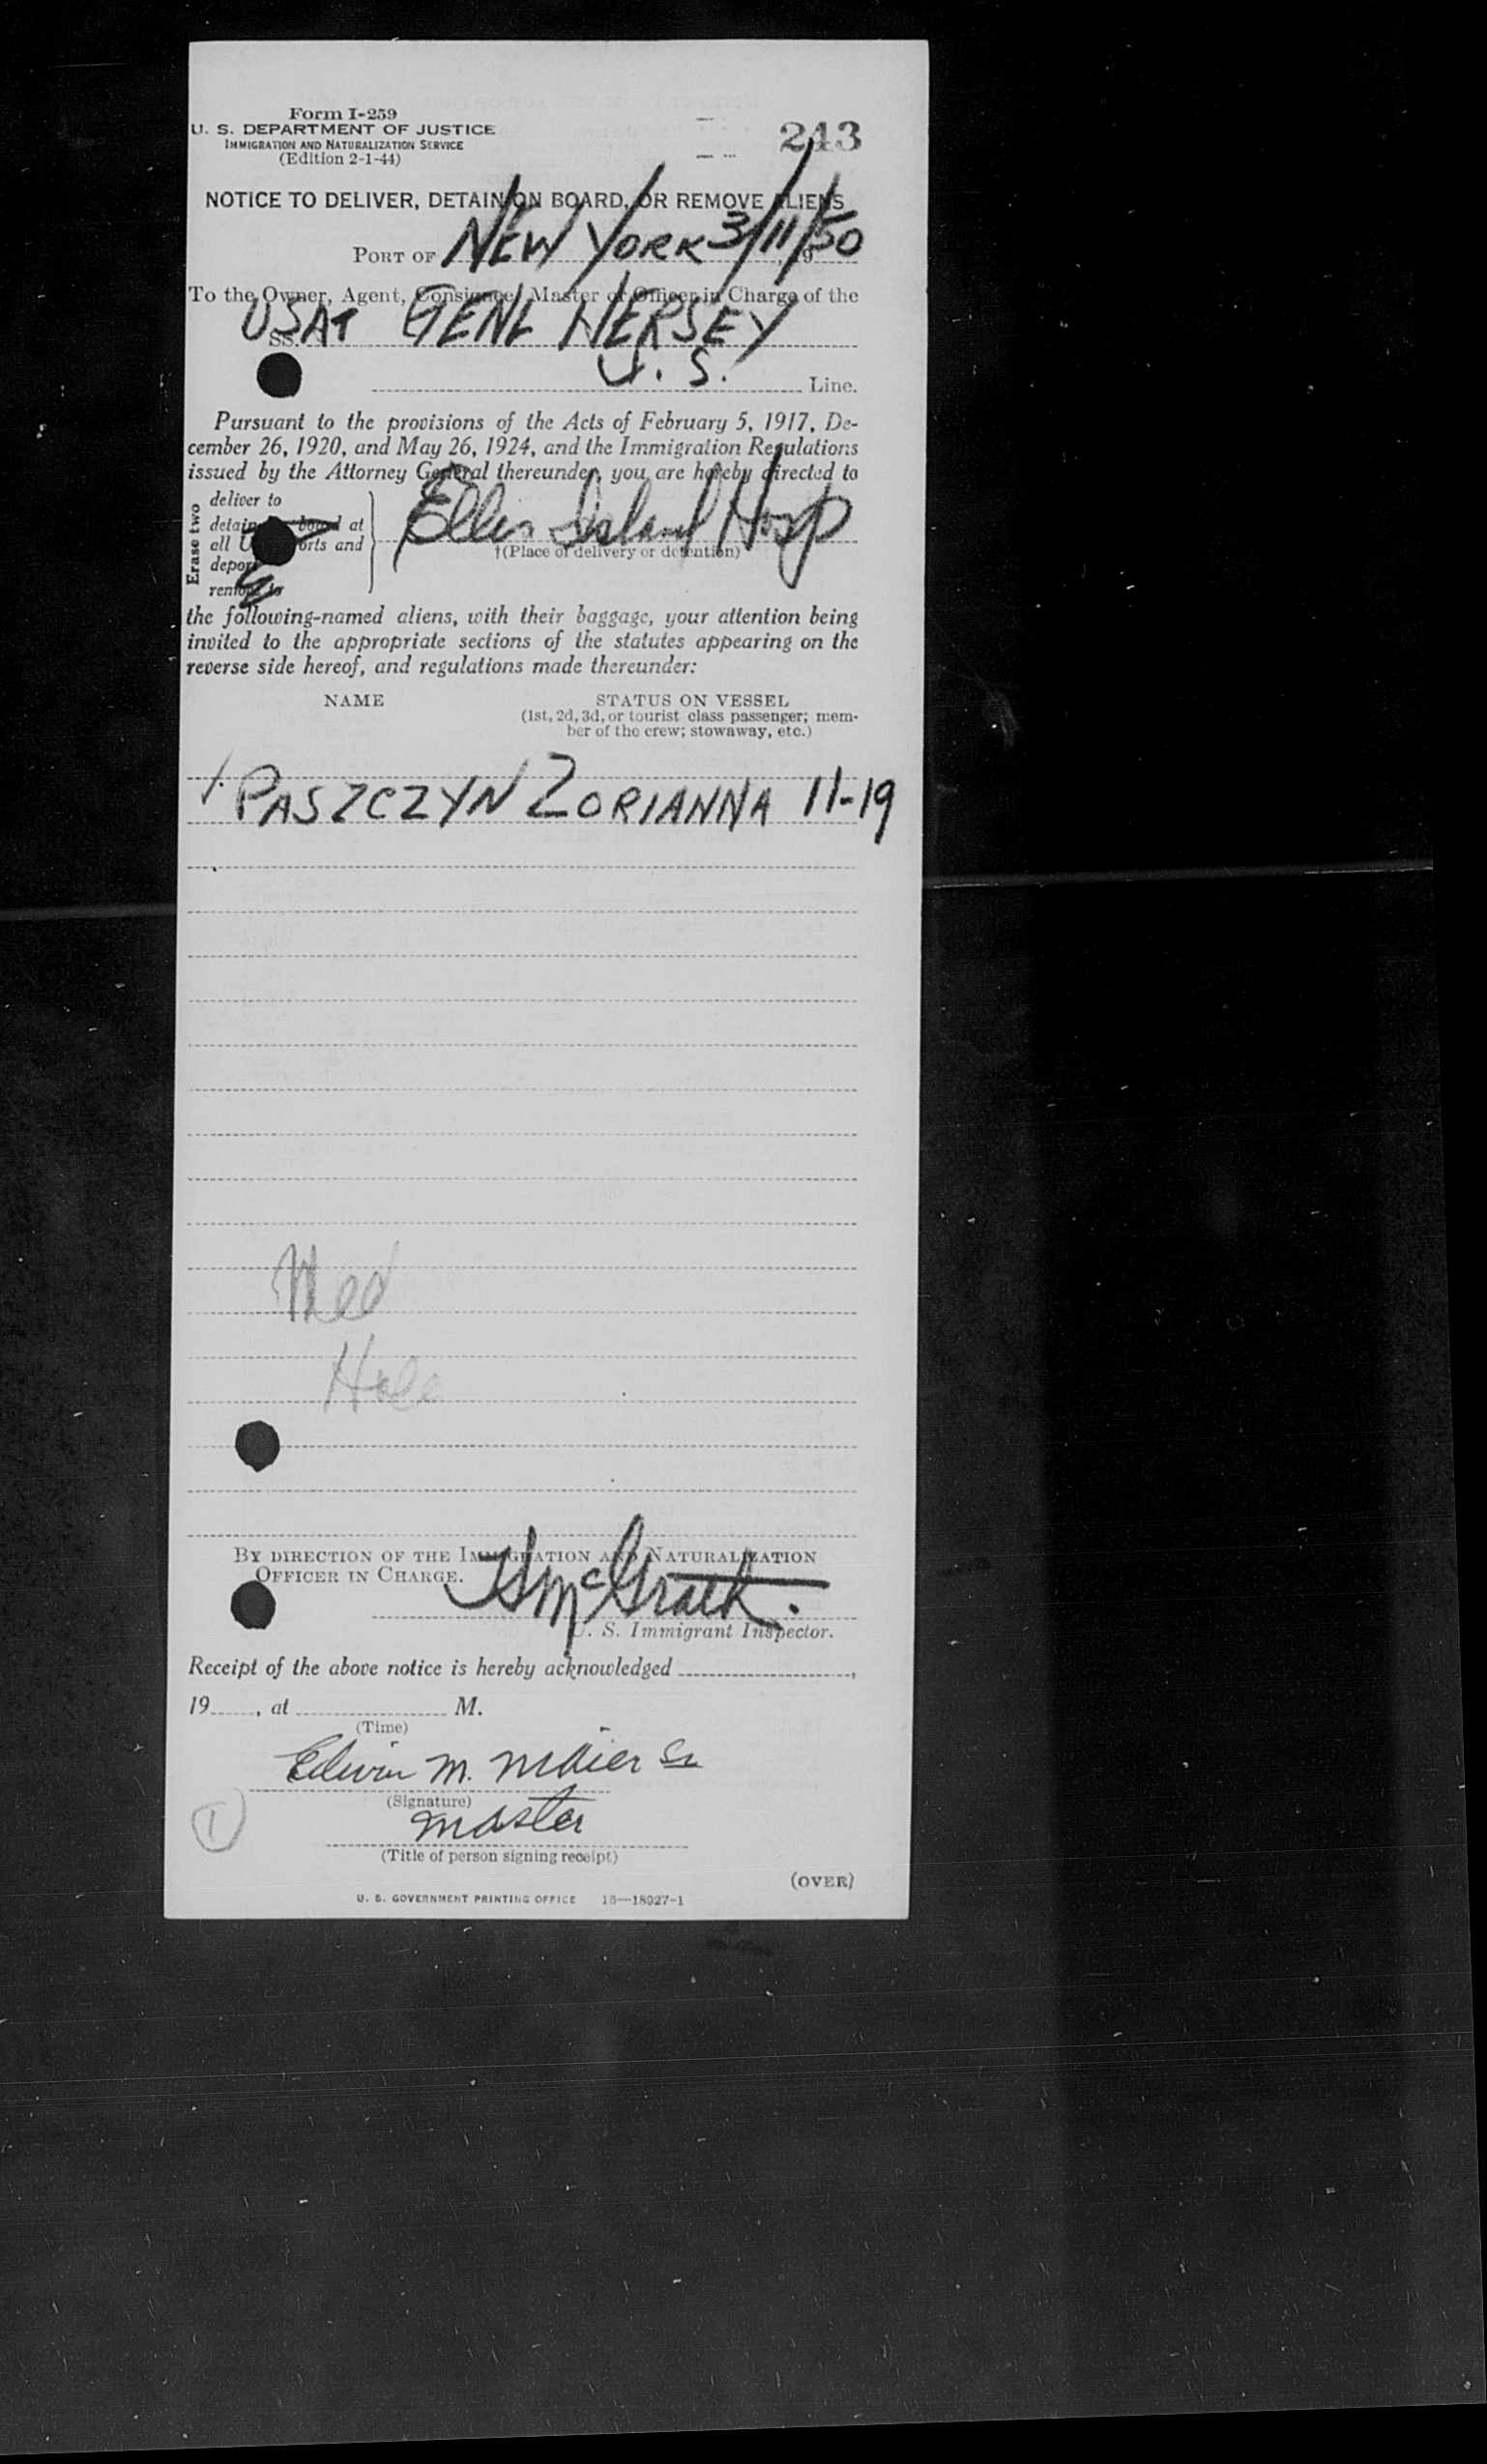 Form I-259
U. S. DEPARTMENT OF JUSTICE
IMMIGRATION AND NATURALIZATION SERVICE
(Edition 2-1-44)
243
NOTICE TO DELIVER, DETAIN ON BOARD, OR REMOVE ALIENS
PORT OF NEW YORK 3/11/50
To the Owner, Agent, Consignee, Master or Officer in Charge of the
SS. USAT GENL HERSEY
U. S. Line.
Pursuant to the provisions of the Acts of February 5, 1917, De-
cember 26, 1920, and May 26, 1924, and the Immigration Regulations
issued by the Attorney General thereunder, you are hereby directed to
Erase two
deliver to
detain board at
all ports and
deport
remove to
Ellis Island Hosp
†(Place of delivery or detention)
the following-named aliens, with their baggage, your attention being
invited to the appropriate sections of the statutes appearing on the
reverse side hereof, and regulations made thereunder:
NAME STATUS ON VESSEL
(1st, 2d, 3d, or tourist class passenger; mem-
ber of the crew; stowaway, etc.)
1. PASZCZYN ZORIANNA 11-19
Med
BY DIRECTION OF THE IMMIGRATION AND NATURALIZATION
OFFICER IN CHARGE.
McGrath.
U. S. Immigrant Inspector.
Receipt of the above notice is hereby acknowledged ,
19 , at M.
(Time)
Edwin M. Maier Sr
(Signature)
1
master
(Title of person signing receipt)
(OVER)
U. S. GOVERNMENT PRINTING OFFICE 16—18927-1